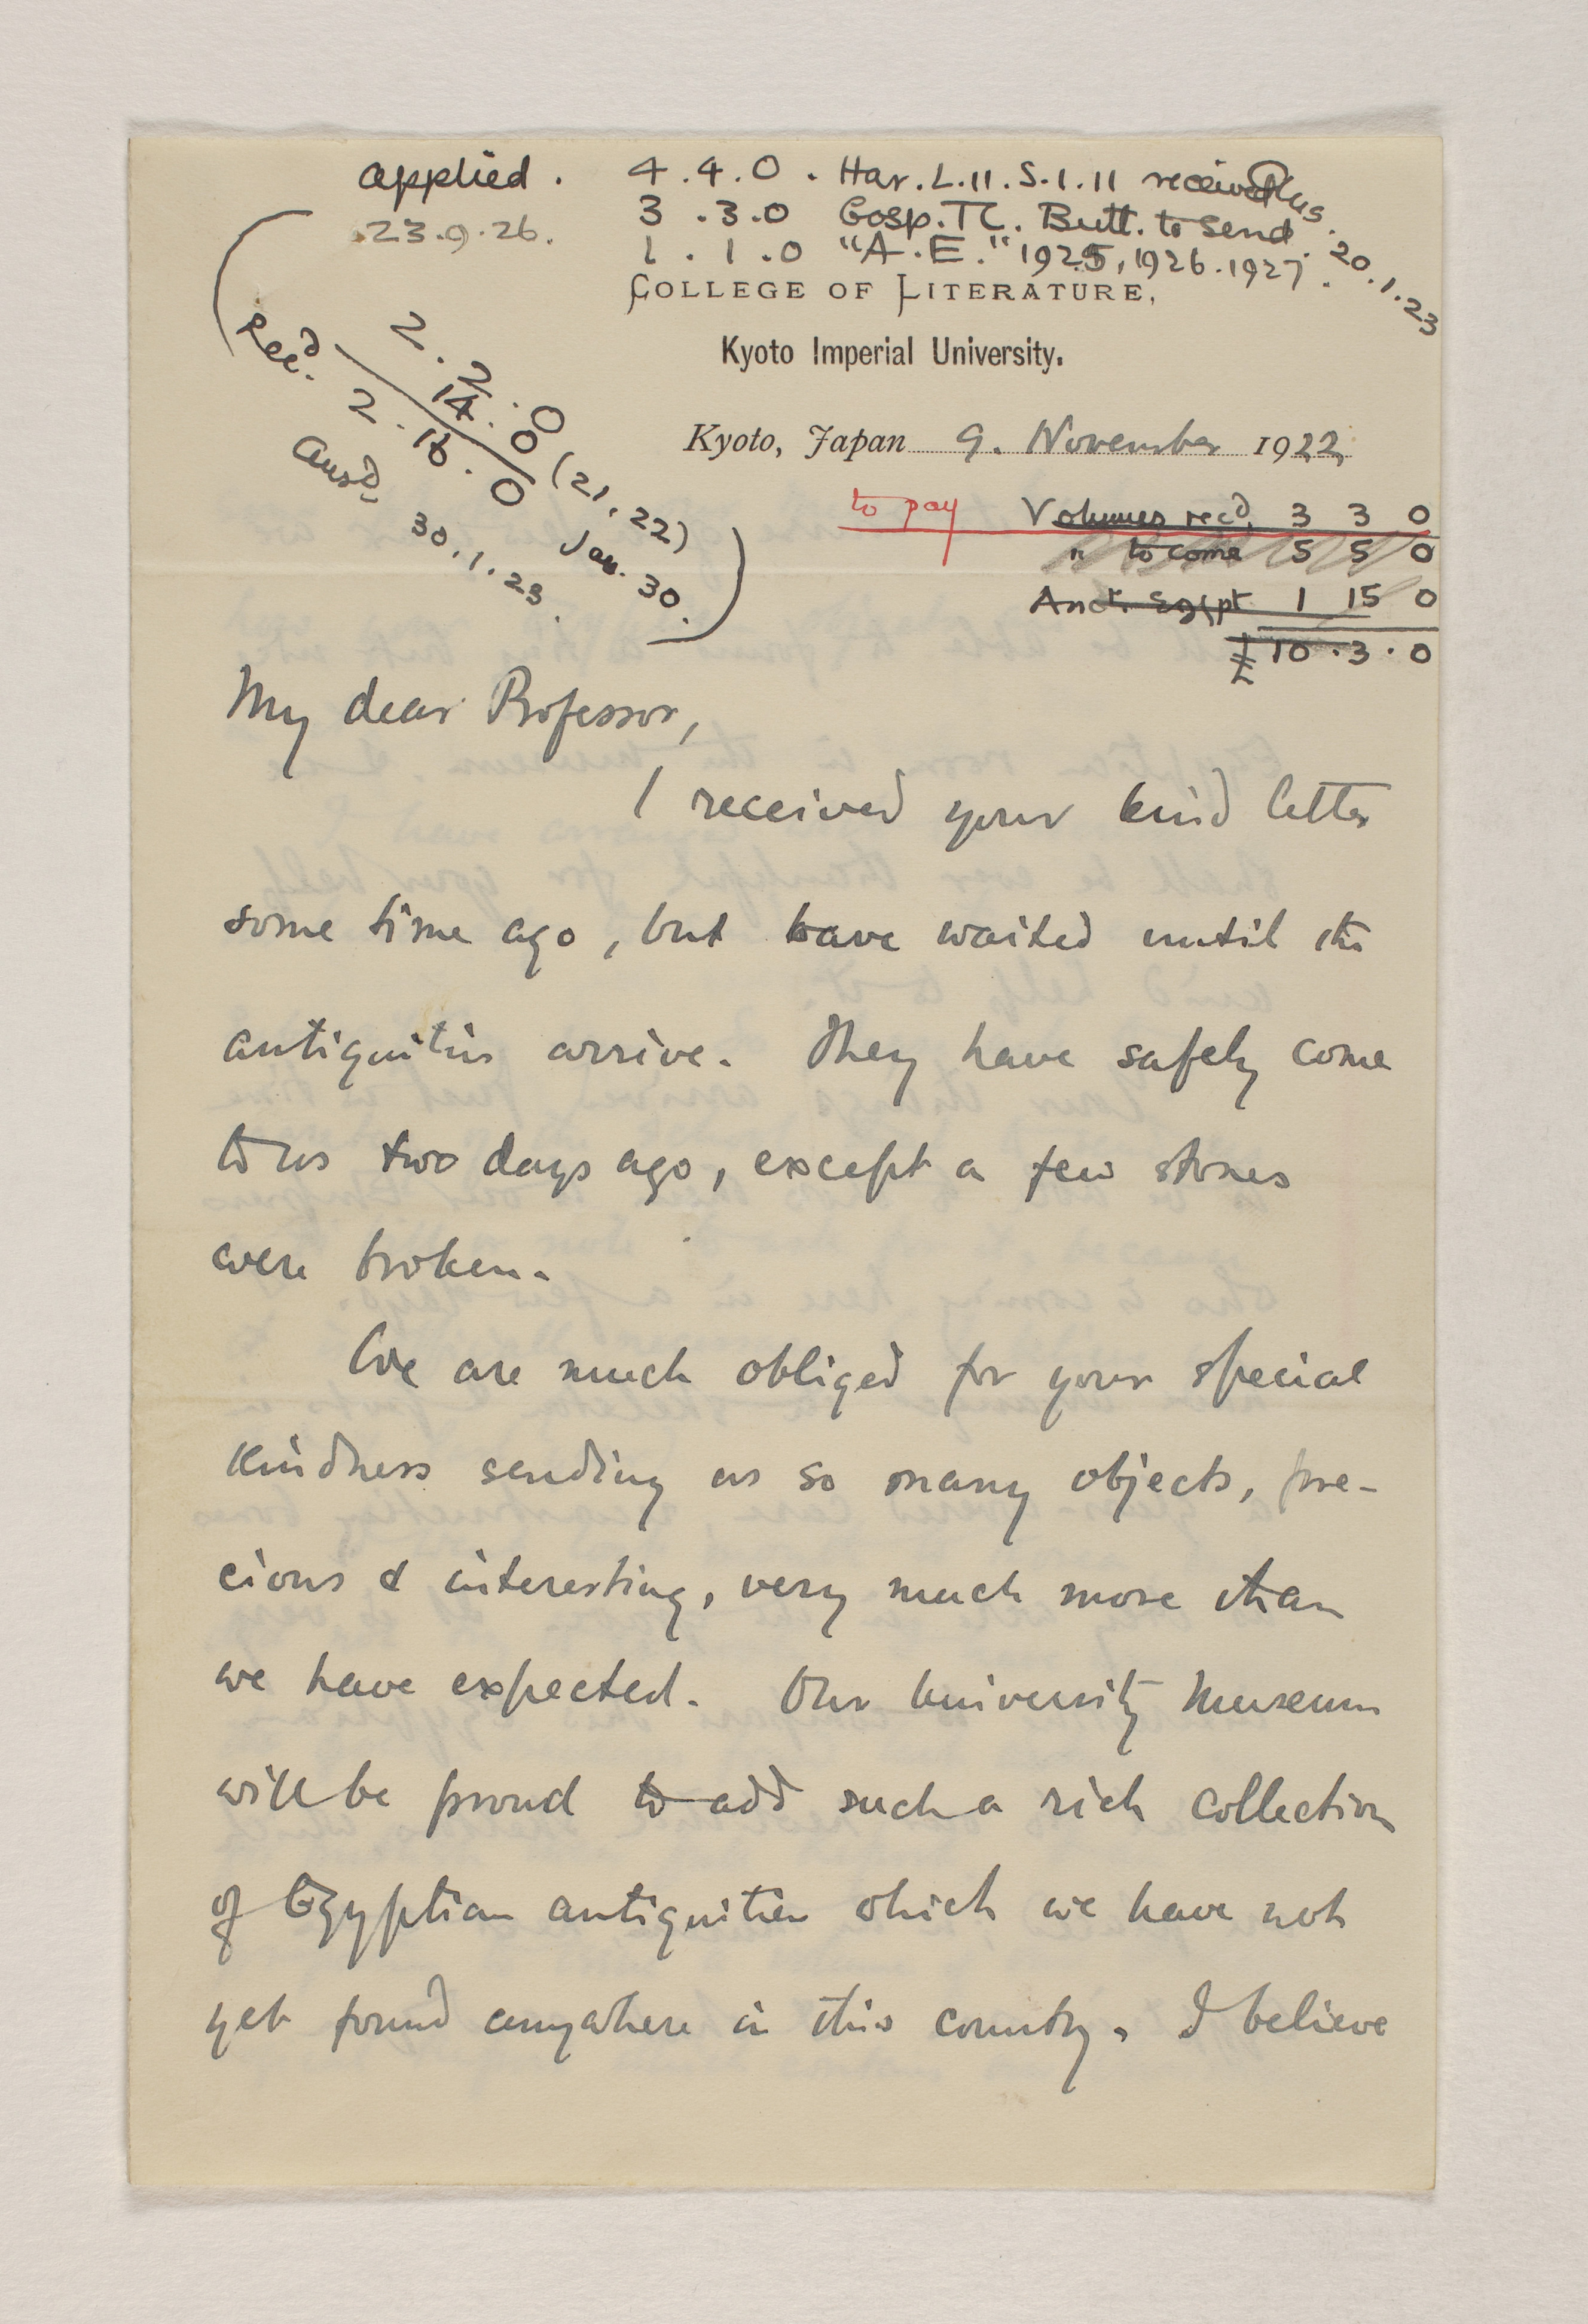 applied. 4.4.0. Har. L. II. S. I. II received
23.9.26. 3.3.0 Gosp. TC. Butt. to send.
1.1.0 "A.E." 1925, 1926. 1927.
20.1.23
COLLEGE OF LITERATURE,
Kyoto Imperial University.
Kyoto, Japan 9. November 1922
2.2.0
14.0 (21, 22)
Recd. 2.16.0 Jan. 30.
Ansd 30.1.23.
to pay Volumes recd. 3 3 0
" to come 5 5 0
Anct. Egypt 1 15 0
£10.3.0
My dear Professor,
I received your kind letter
some time ago, but have waited until the
antiquities arrive. They have safely come
to us two days ago, except a few stones
were broken.
We are much obliged for your special
kindness sending us so many objects, pre-
cious & interesting, very much more than
we have expected. Our University Museum
will be proud to add such a rich collection
of Egyptian antiquities which we have not
yet found anywhere in this country. I believe